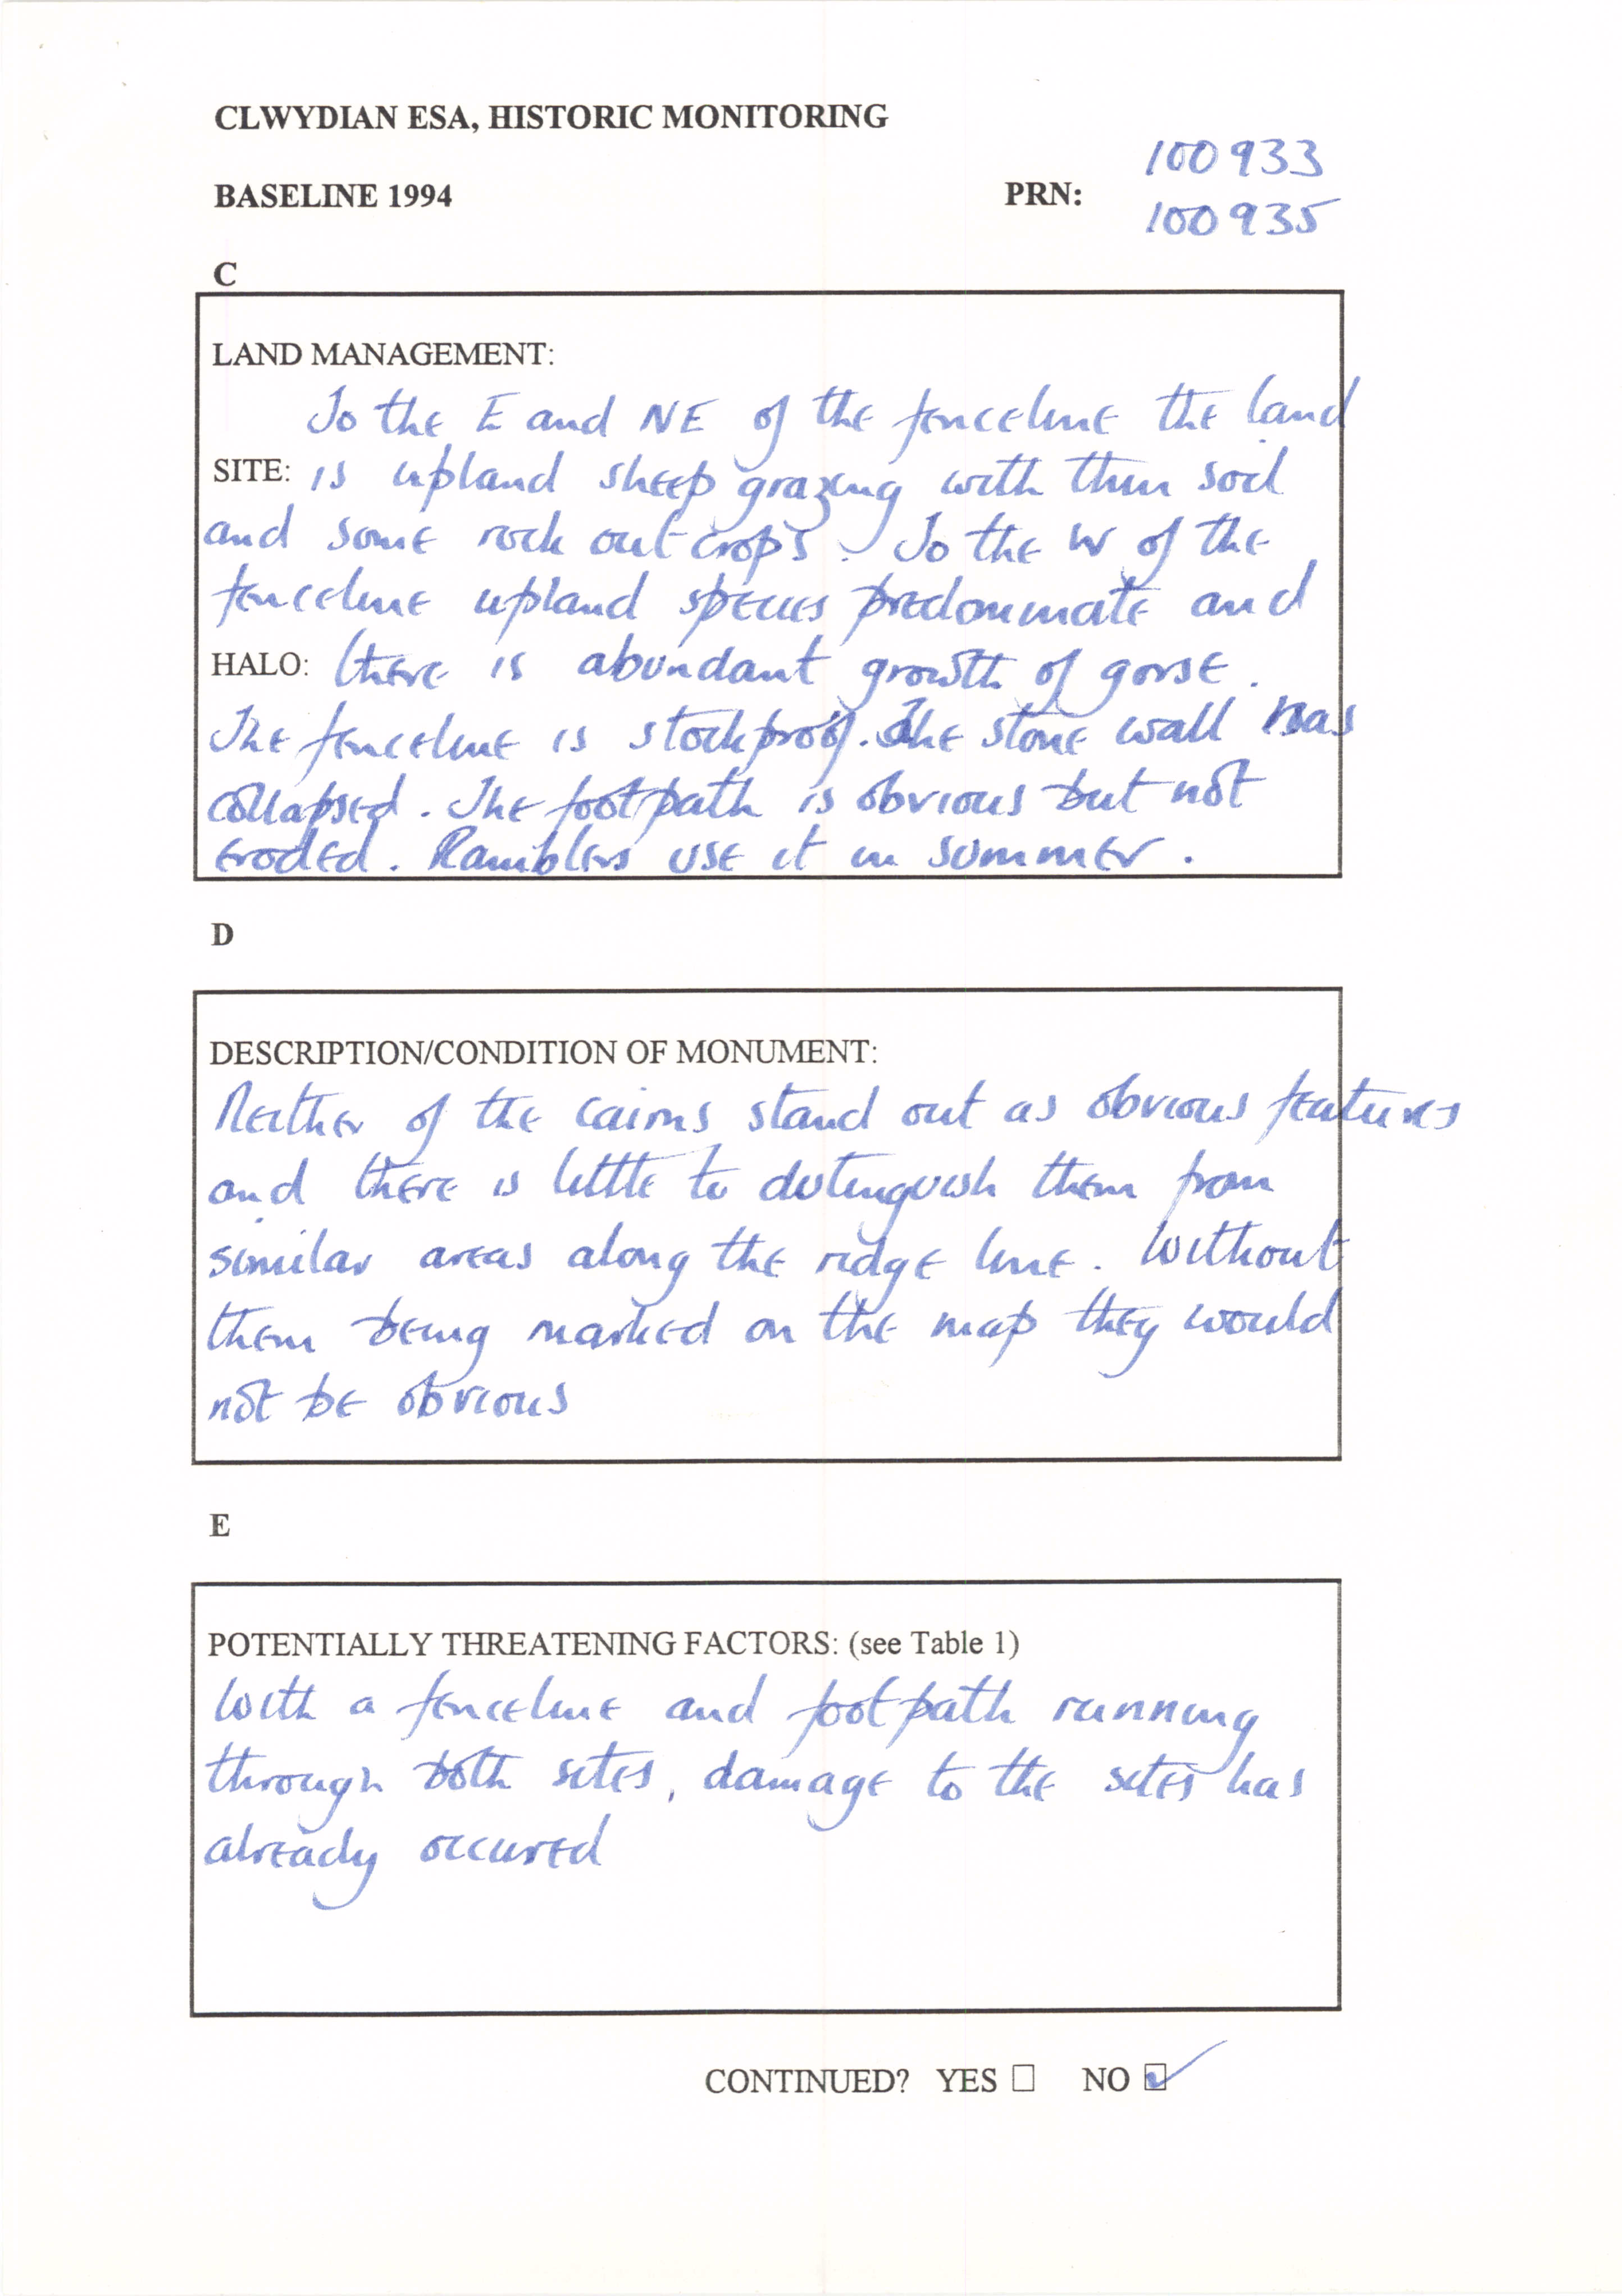 CLWYDIAN ESA, HISTORIC MONITORING
100933
BASELINE 1994 PRN:
100935
C
LAND MANAGEMENT:
To the E and NE of the fenceline the land
SITE: is upland sheep grazing with thin soil
and some rock out-crops. To the W of the
fenceline upland species predominate and
HALO: there is abundant growth of gorse.
The fenceline is stockproof. The stone wall has
collapsed. The footpath is obvious but not
eroded. Ramblers use it in summer.
D
DESCRIPTION/CONDITION OF MONUMENT:
Neither of the cairns stand out as obvious features
and there is little to distinguish them from
similar areas along the ridge line. Without
them being marked on the map they would
not be obvious
E
POTENTIALLY THREATENING FACTORS: (see Table 1)
With a fenceline and footpath running
through both sites, damage to the sites has
already occured
CONTINUED? YES ☐ NO ☑